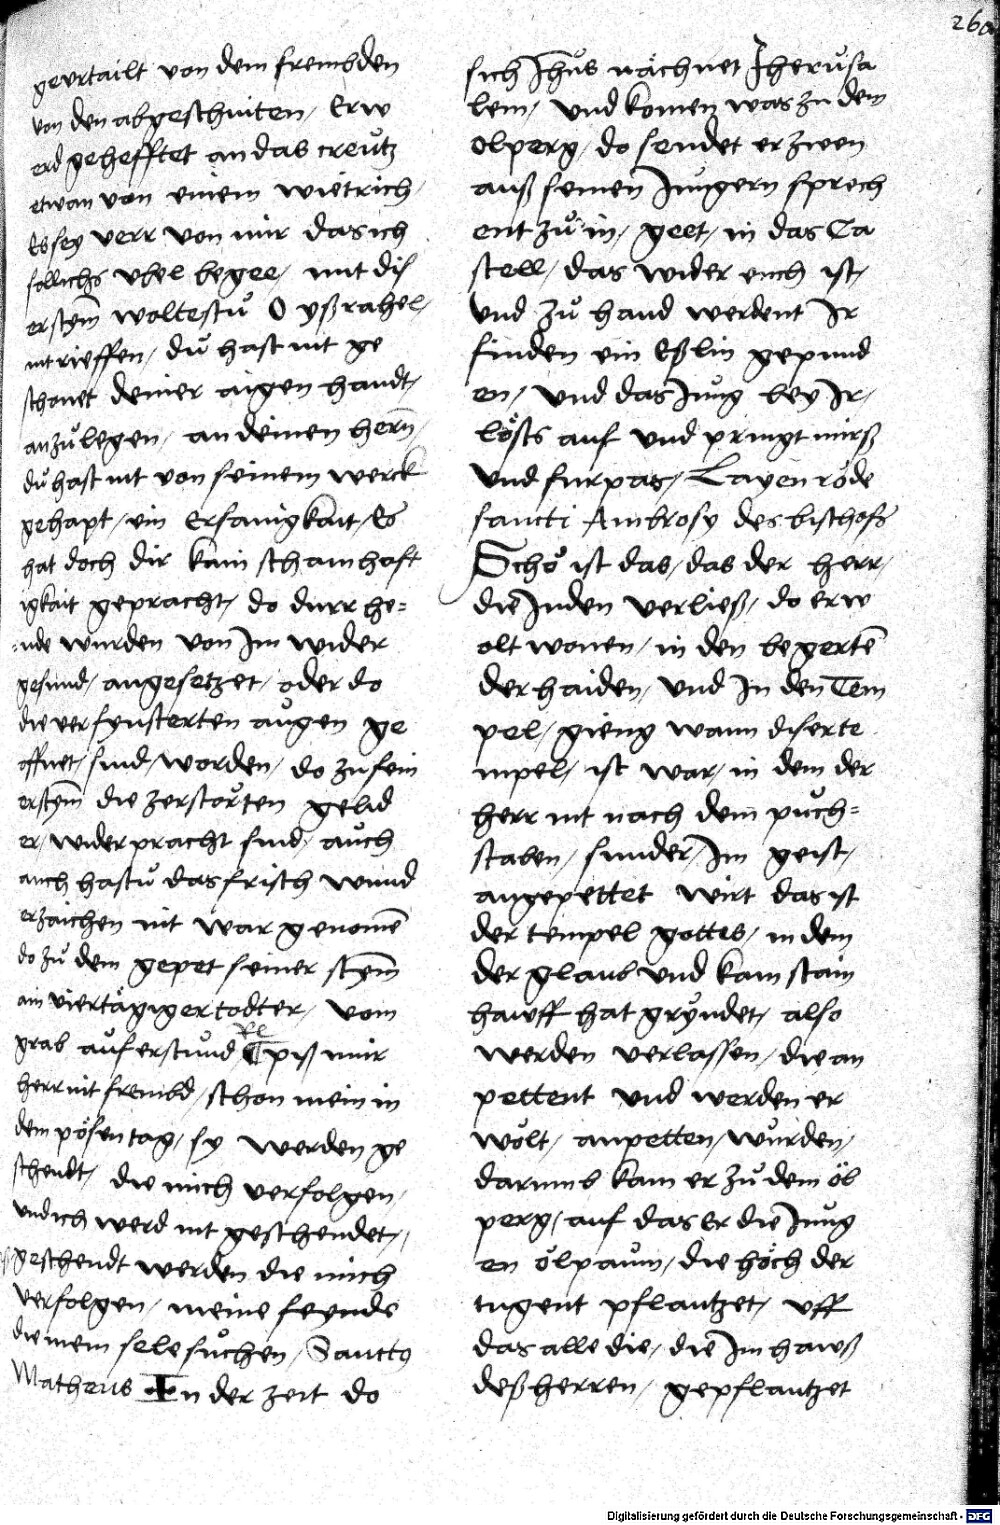 260
geurtailt von dem frembden
von den abgeschniten / Er w
erd gehefftet an das creutz
etwan von einem wietrich /
Es sey verr von mir das ich
sollichs vbel begee / mit dis
er stym̄ woltestu O ysrahel /
nit rieffen / du hast nit ge
schonet deiner aigen handt /
anzulegen / an deinen hern̄ /
du hast nit von seinem werck
gehapt / ein Ersamigkait / Es
hat doch dir kain schamhaft
igkait gepracht / do durr he=
nde wurden von Im wider
gesund / angesetzet / oder do
die verfynsterten augen ge
offnet / sind / worden / do zu sein
er stym̄ die zerstorten gelid
er / widerpracht sind / auch
auch hastu das frisch wund
erzaichen nit war genomē
do zu dem gepet seiner stym̄
ain viertägiger todter / vom
grab auferstund / Re Piss mir
herr nit frembd / schon mein in
dem pösen tag / sy werden ge
schendt / die mich verfolgen /
vnd ich werd nit geschendet /
geschendt werden die mich
verfolgen / meine feynde
die mein sele suchen / Sanctus
Matheus In der zeit do
sich Ihus nächnet Jherusa
lem / vnd komen was zu dem
olperg / do sendet er zwen
auß seinen Jungern sprech
ent zu in / geet / in das Ca
stell / das wider euch ist /
vnd zu hand werdent Ir
finden ein Eßlin gepund
en / vnd das Jung bey Ir /
lösts auf vnd pringt mirß
vnd furpas / Layen röde
sancti Ambrosy des bischofs
Schö ist das / das der herr /
die Juden verließ / do er w
olt wonen / in den begertē
der haiden / vnd In den Tem
pel / gieng wann diser te
mpel / ist war / in dem der
herr nit nach dem puch=
staben / sunder / Im geist /
angepettet wirt das ist
der tempel gottes / in dem
der glaub vnd kain stain
hawff hat gryndet / also
werden verlassen / die an
pettent vnd werden er
wölt / anpetten / wurden /
darumb kam er zu dem öl
perg / auf das Er die Jung
en ölpaum / die höch der
tugent pflantzet / vff
das alle die / die Im hawß
deß herren / gepflantzet
Digitalisierung gefördert durch die Deutsche Forschungsgemeinschaft - DFG